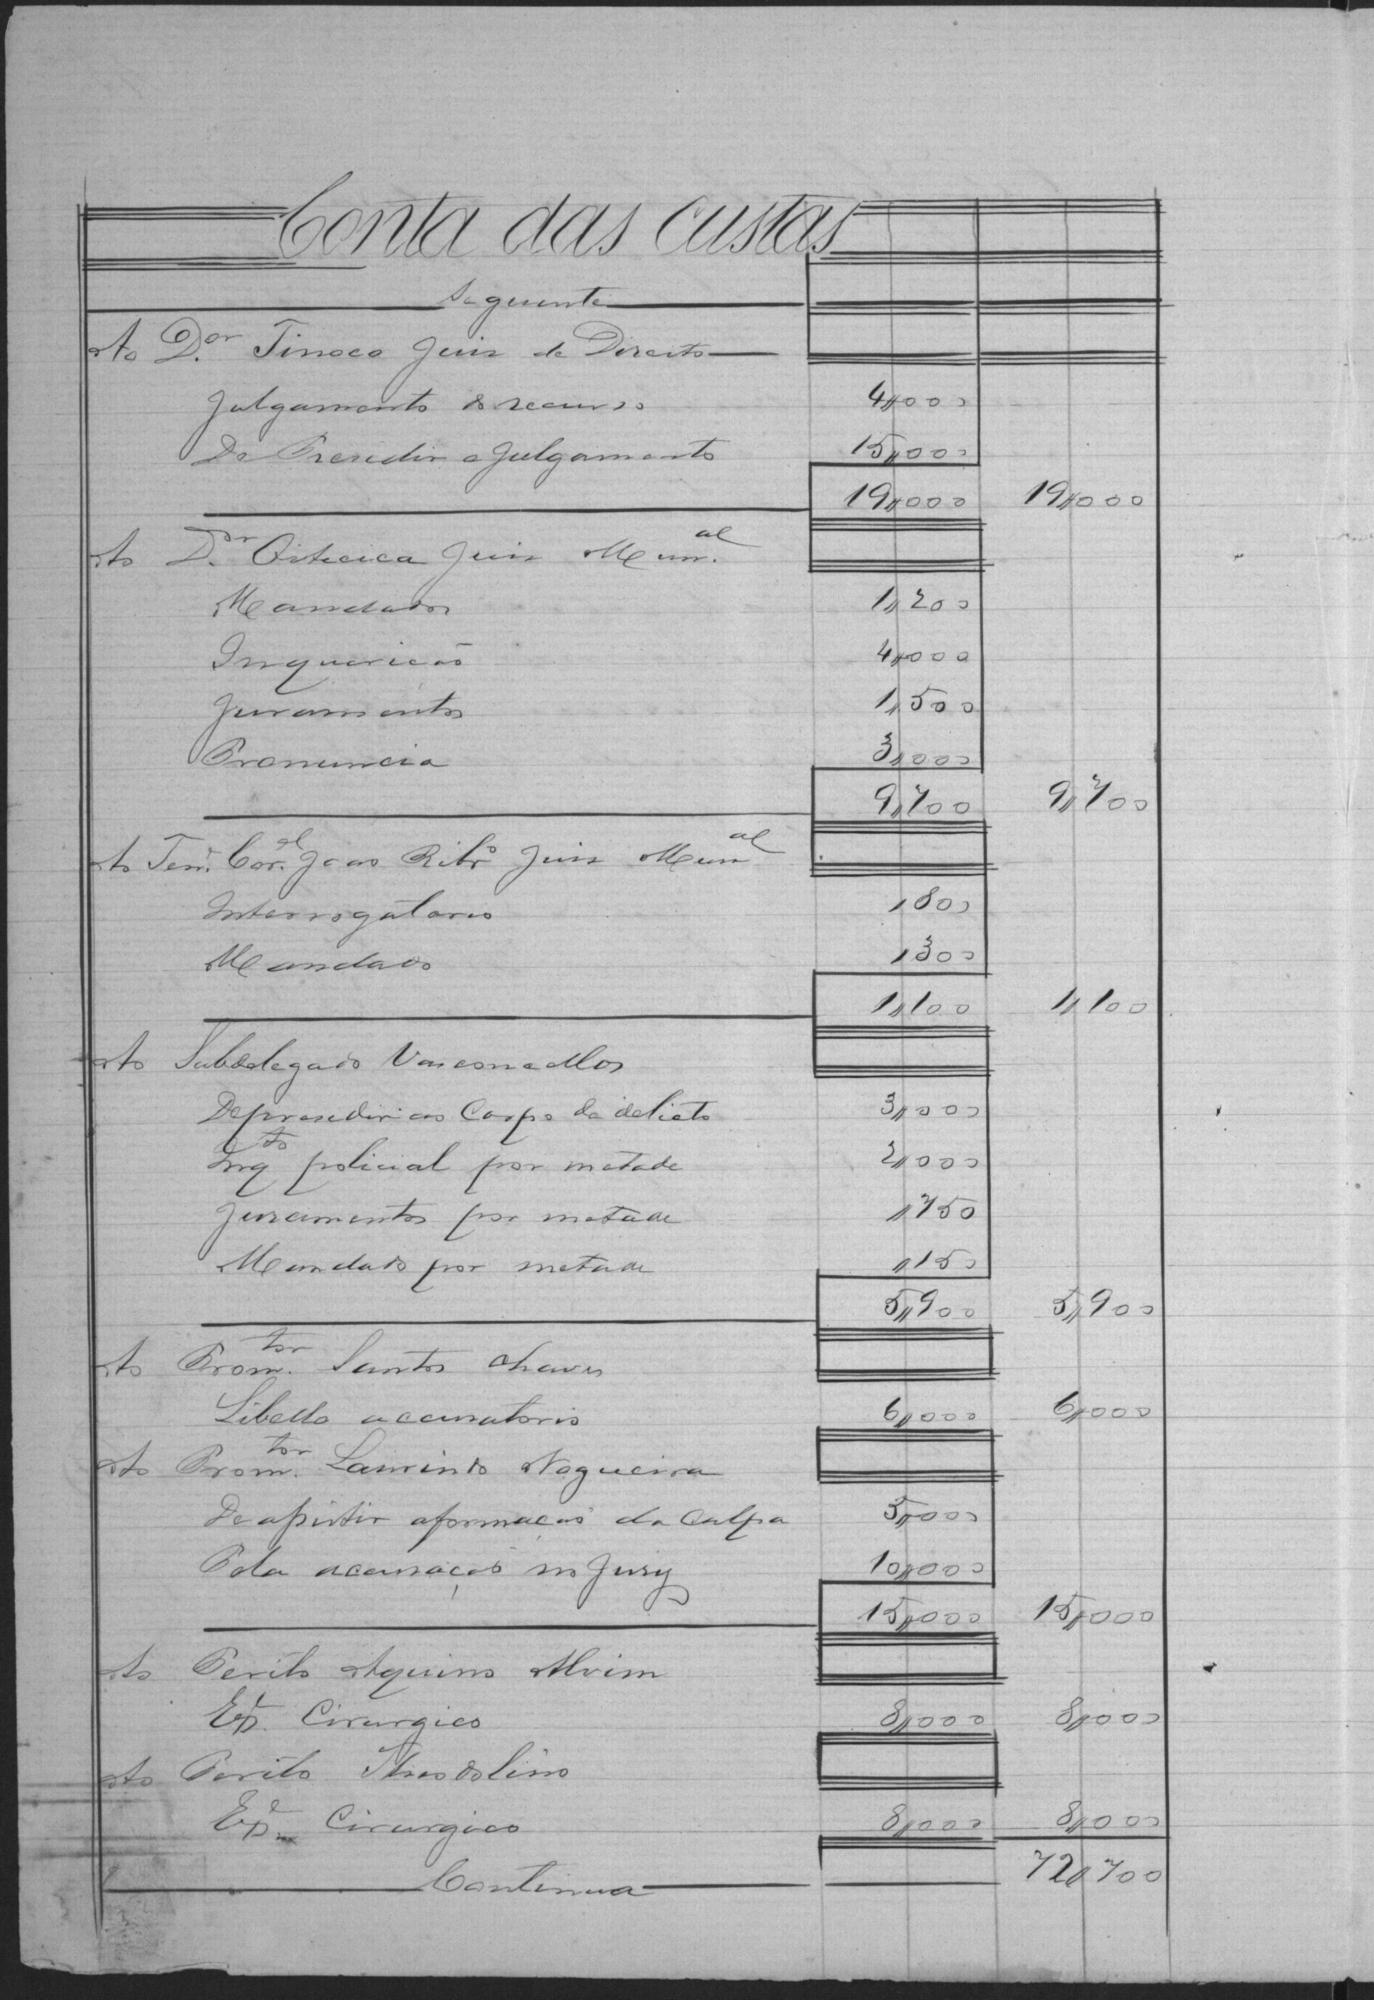 Conta das custas
Seguinte
Ao D.or Tinoco Juiz de Direito
Julgamento do recurso 4,,000
De Presidir o julgamento 15,,000
19,,000 19,,000
Ao D.or Oiticica Juiz Mun.al
Mandados 1,,200
Inquericão 4,,000
Juramentos 1,,500
Pronuncia 3,,000
9,,700 9,,700
Ao Ten.e Cor.el João Ribr.o Juiz Mun.al
Interrogatorio ,,800
Mandado ,,300
1,,100 1,,100
Ao Subdelegado Vasconcellos
De presedir ao Corpo de delicto 3,,000
Inq.to policial por metade 2,,000
Juramentos por metade ,,750
Mandado por metade ,,150
5,,900 5,,900
Ao Prom.tor Santos Chaves
Libello accusatorio 6,,000 6,,000
Ao Prom.tor Laurindo Nogueira
De assistir a formação da Culpa 5,,000
Pela accusação no Jury 10,,000
15,,000 15,,000
Ao Perito Aquino Alvim
Ex.e Cirurgico 8,,000 8,,000
Ao Perito Theodolino
Ex.e Cirurgico 8,,000 8,,000
Continua 72,,700